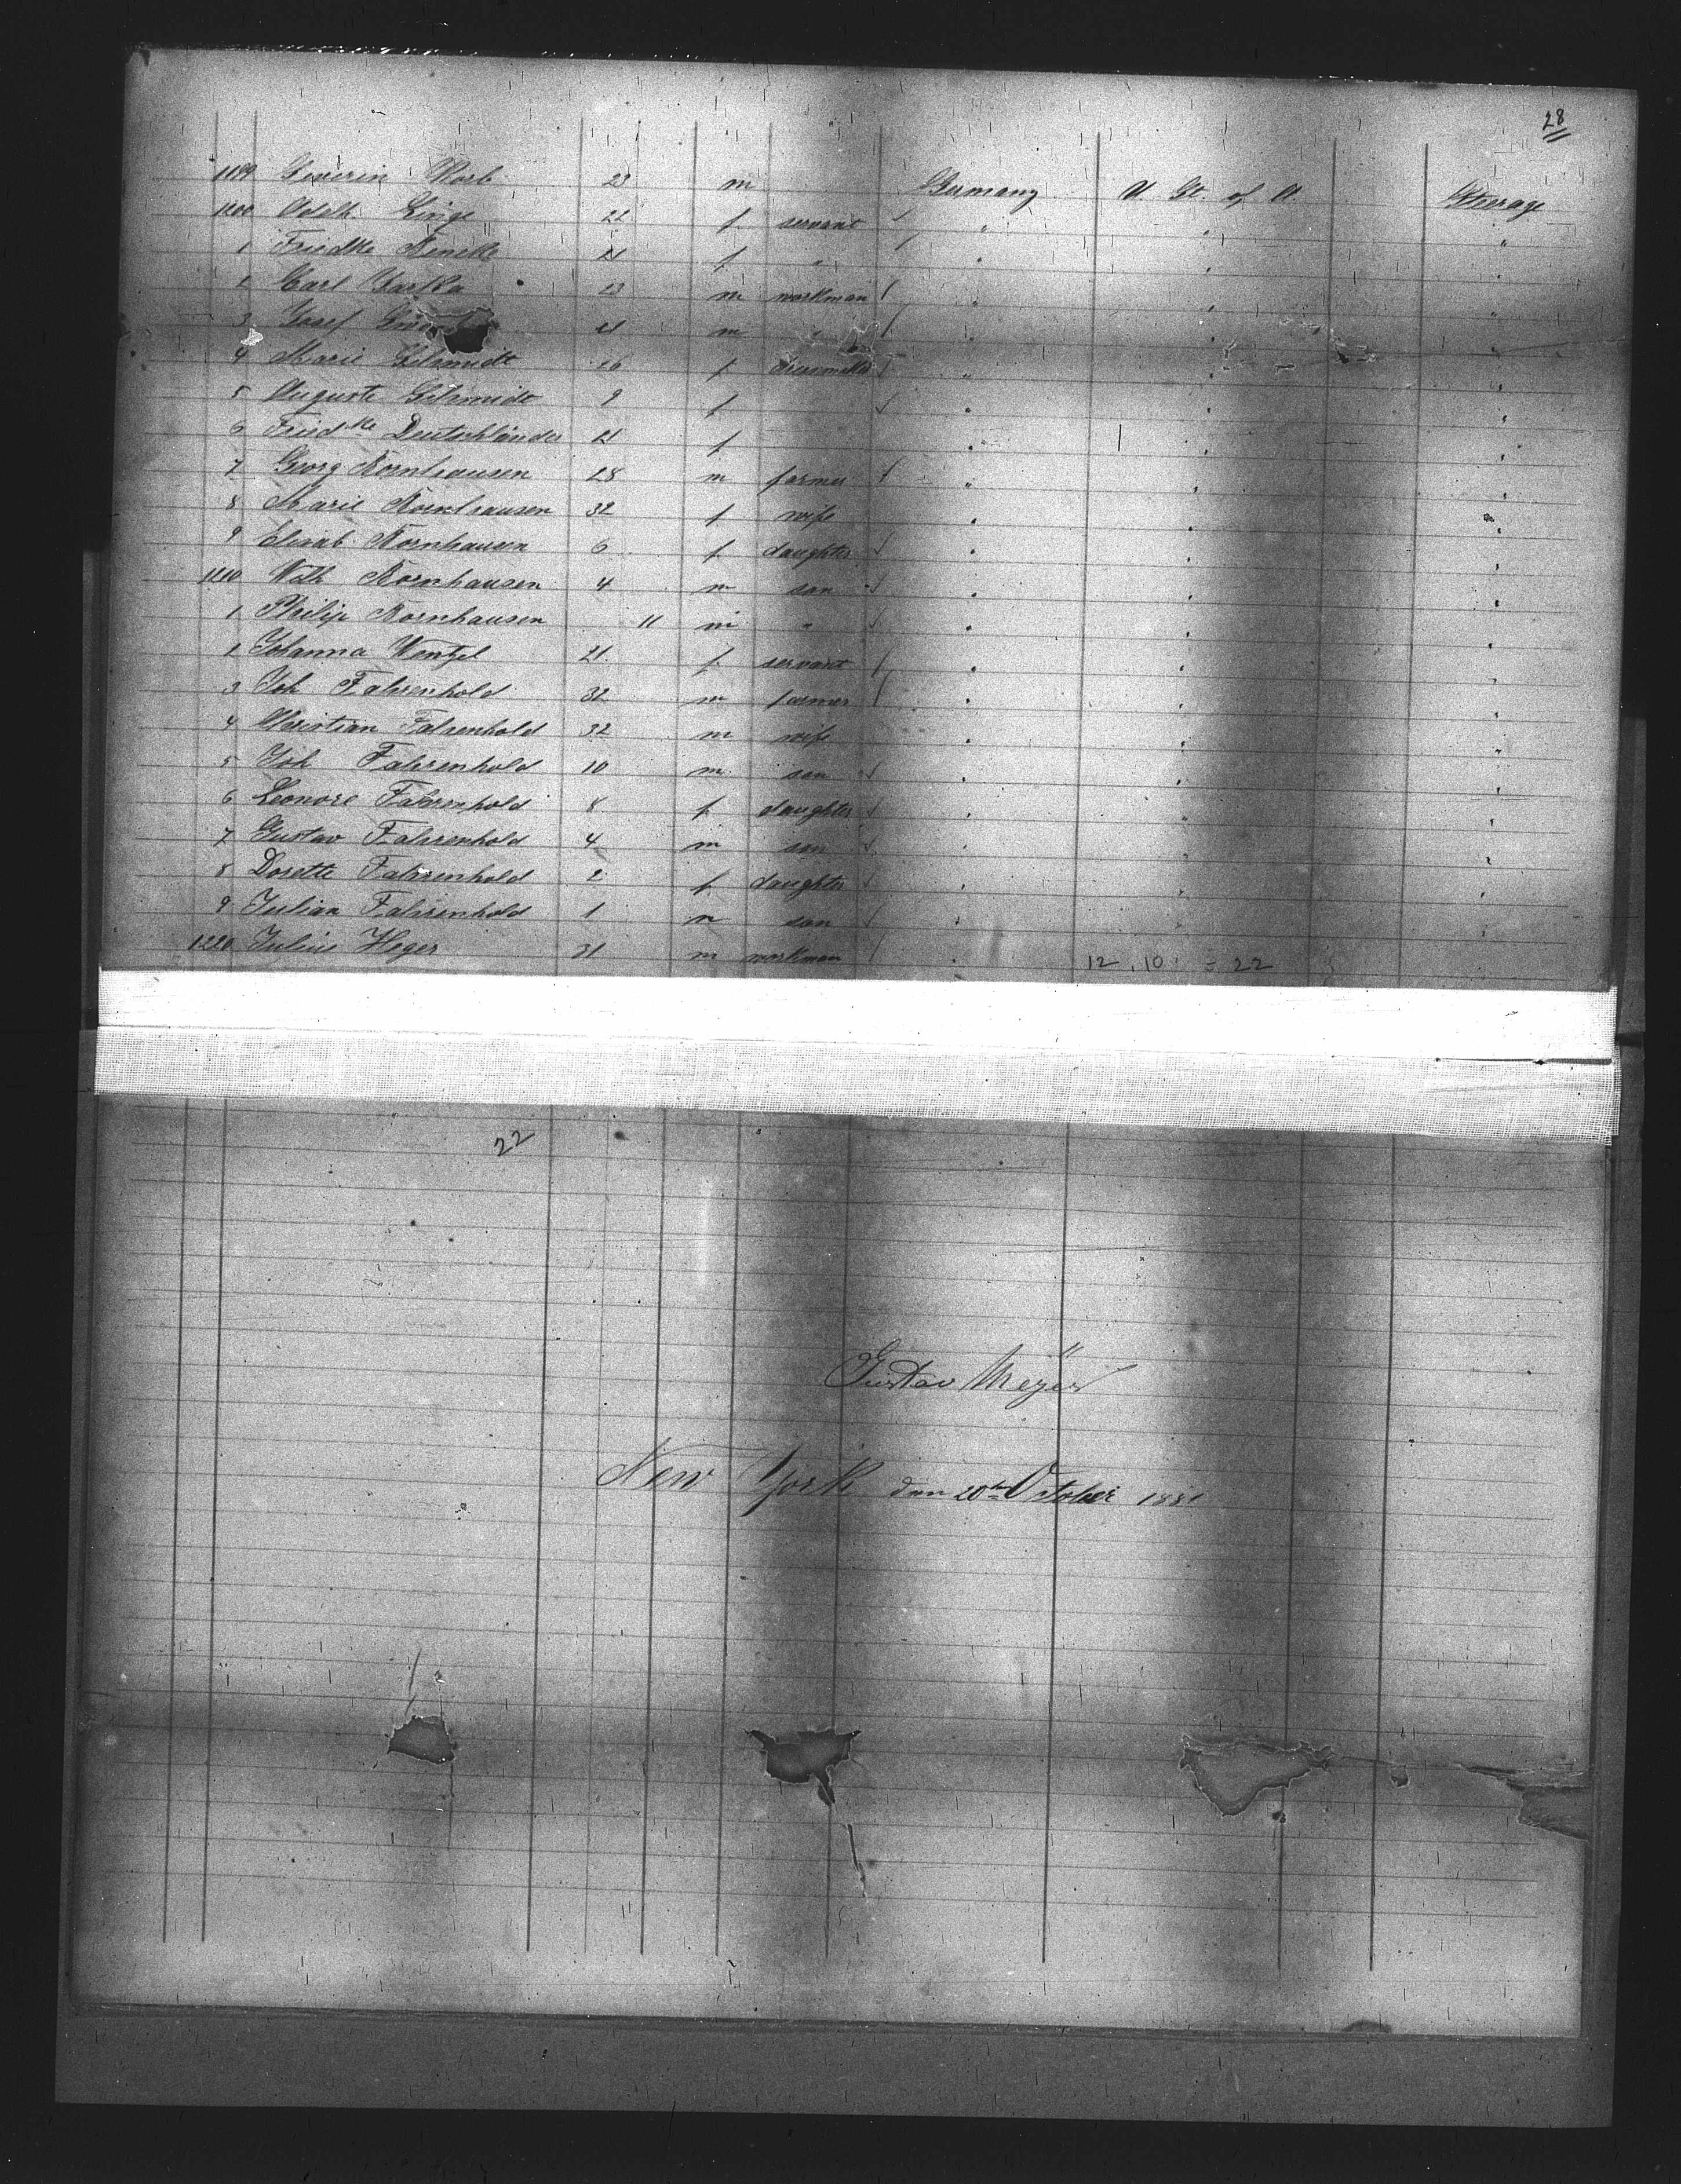 28
1199 Severin 23 m Germany U. St. of A. Steerage
1200 Adelh. Linge 22 f servant ✓ " " "
1 Friedke 21 f " / " " "
2 Carl 23 m workman / " " "
3 Josef m " / " " "
4 Marie Schmidt 26 f ✓ " " "
5 Auguste Schmidt 9 f ✓ " " "
6 Friedke Deutschländer 21 f " " "
7 Georg Kornhausen 28 m farmer ✓ " " "
8 Marie Kornhausen 32 f wife " " "
9 Elisab Kornhausen 6 f daughter ✓ " " "
1210 Wilh Kornhausen 4 m son ✓ " " "
1 Philip Kornhausen 11 m " ✓ " " "
2 Johanna Wentzel 21. f servant / " " "
3 Joh Fahrenhold 32 m farmer / " " "
4 Christian Fahrenhold 32 m wife " " "
5 Joh Fahrenhold 10 m son ✓ " " "
6 Leonore Fahrenhold 8 f daughter ✓ " " "
7 Gustav Fahrenhold 4 m son ✓ " " "
8 Dorette Fahrenhold 2 f daughter ✓ " " "
9 Julian Fahrenhold 1 m son ✓ " " "
1220 Julius Heger 31 m workman / " 12 . 10 = 22
22
Gustav Meyer
New York den 20th October 1881